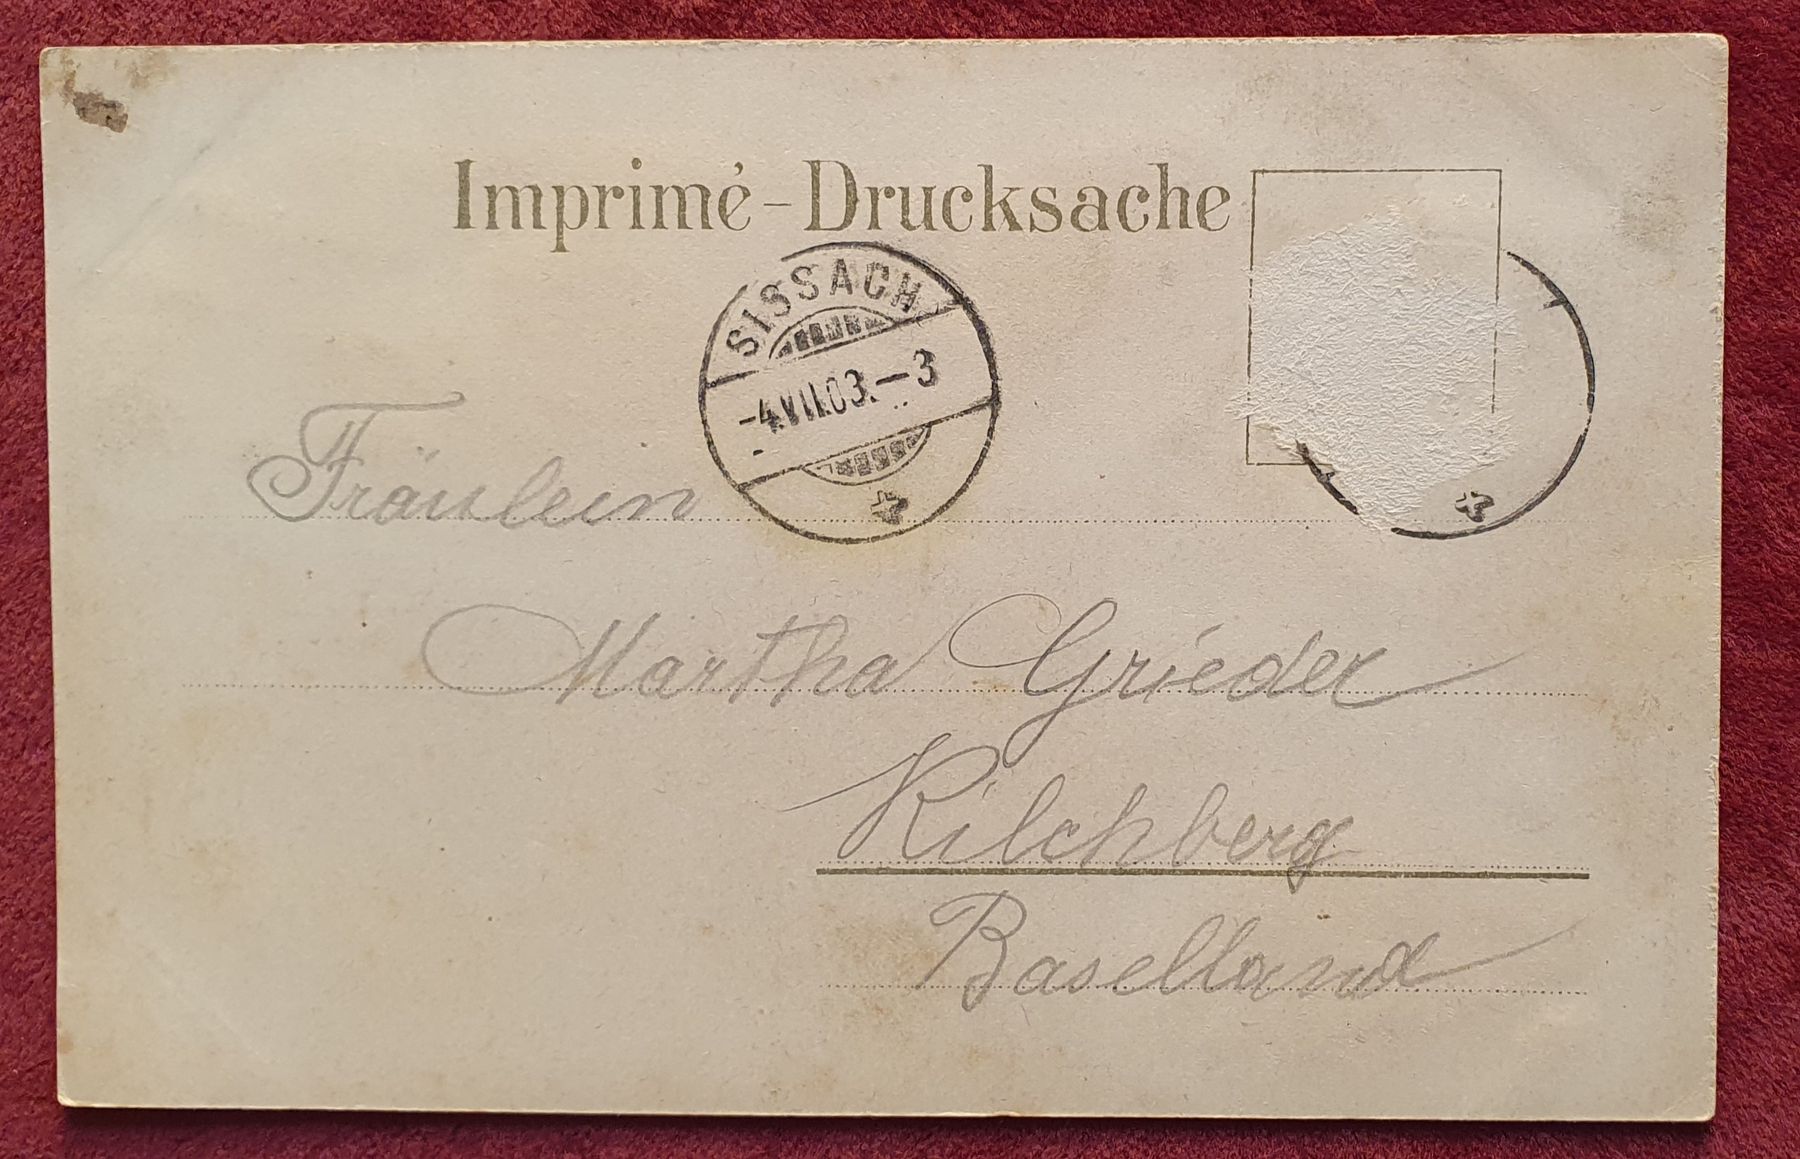 Imprimé-Drucksache
SISSACH
-4.VII.03.-3
Fräulein
Martha Grieder
Kilchberg
Baselland